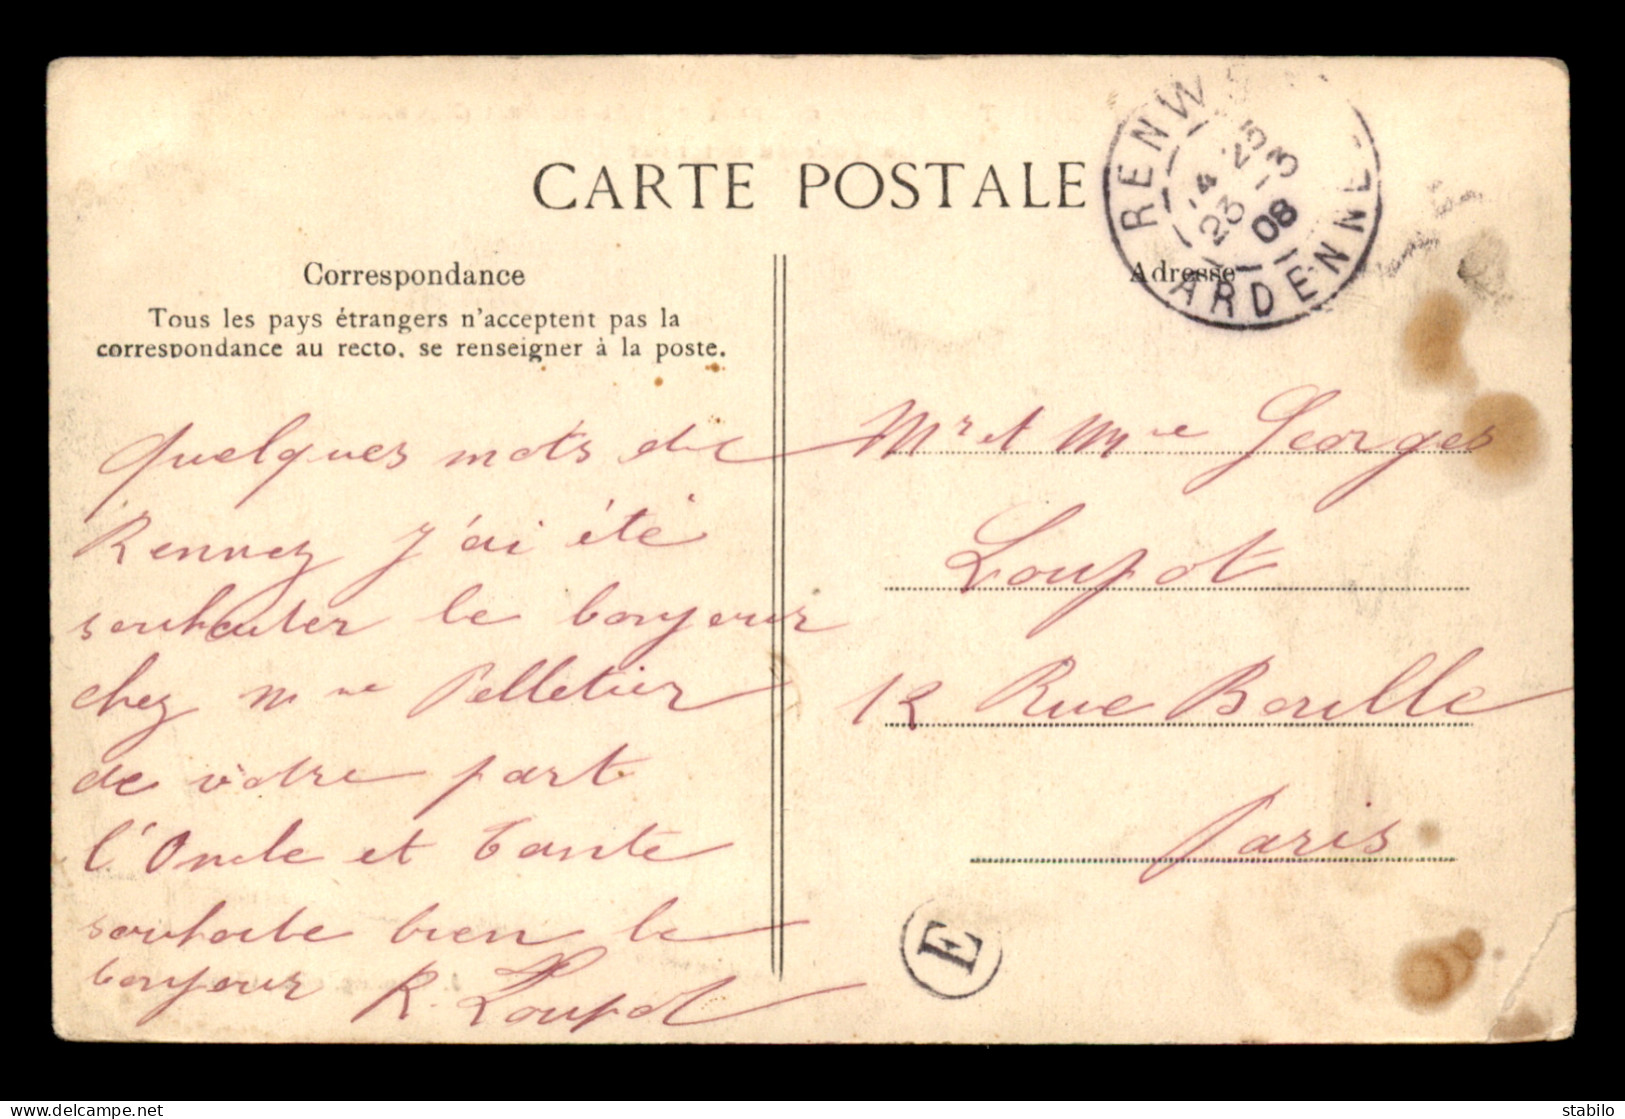 CARTE POSTALE
Correspondance
Tous les pays étrangers n'acceptent pas la
correspondance au recto, se renseigner à la poste.
Quelques mots de
Rennez J'ai été
souhaiter le bonjour
chez Mme Pelletier
de votre part
l'Oncle et Tante
souhaite bien le
bonjour R. Loupot
RENW
14 25
23 -3
08
ARDENNE
Adresse
Mr et Mme Georges
Loupot
12 Rue
Paris
E
stabilo